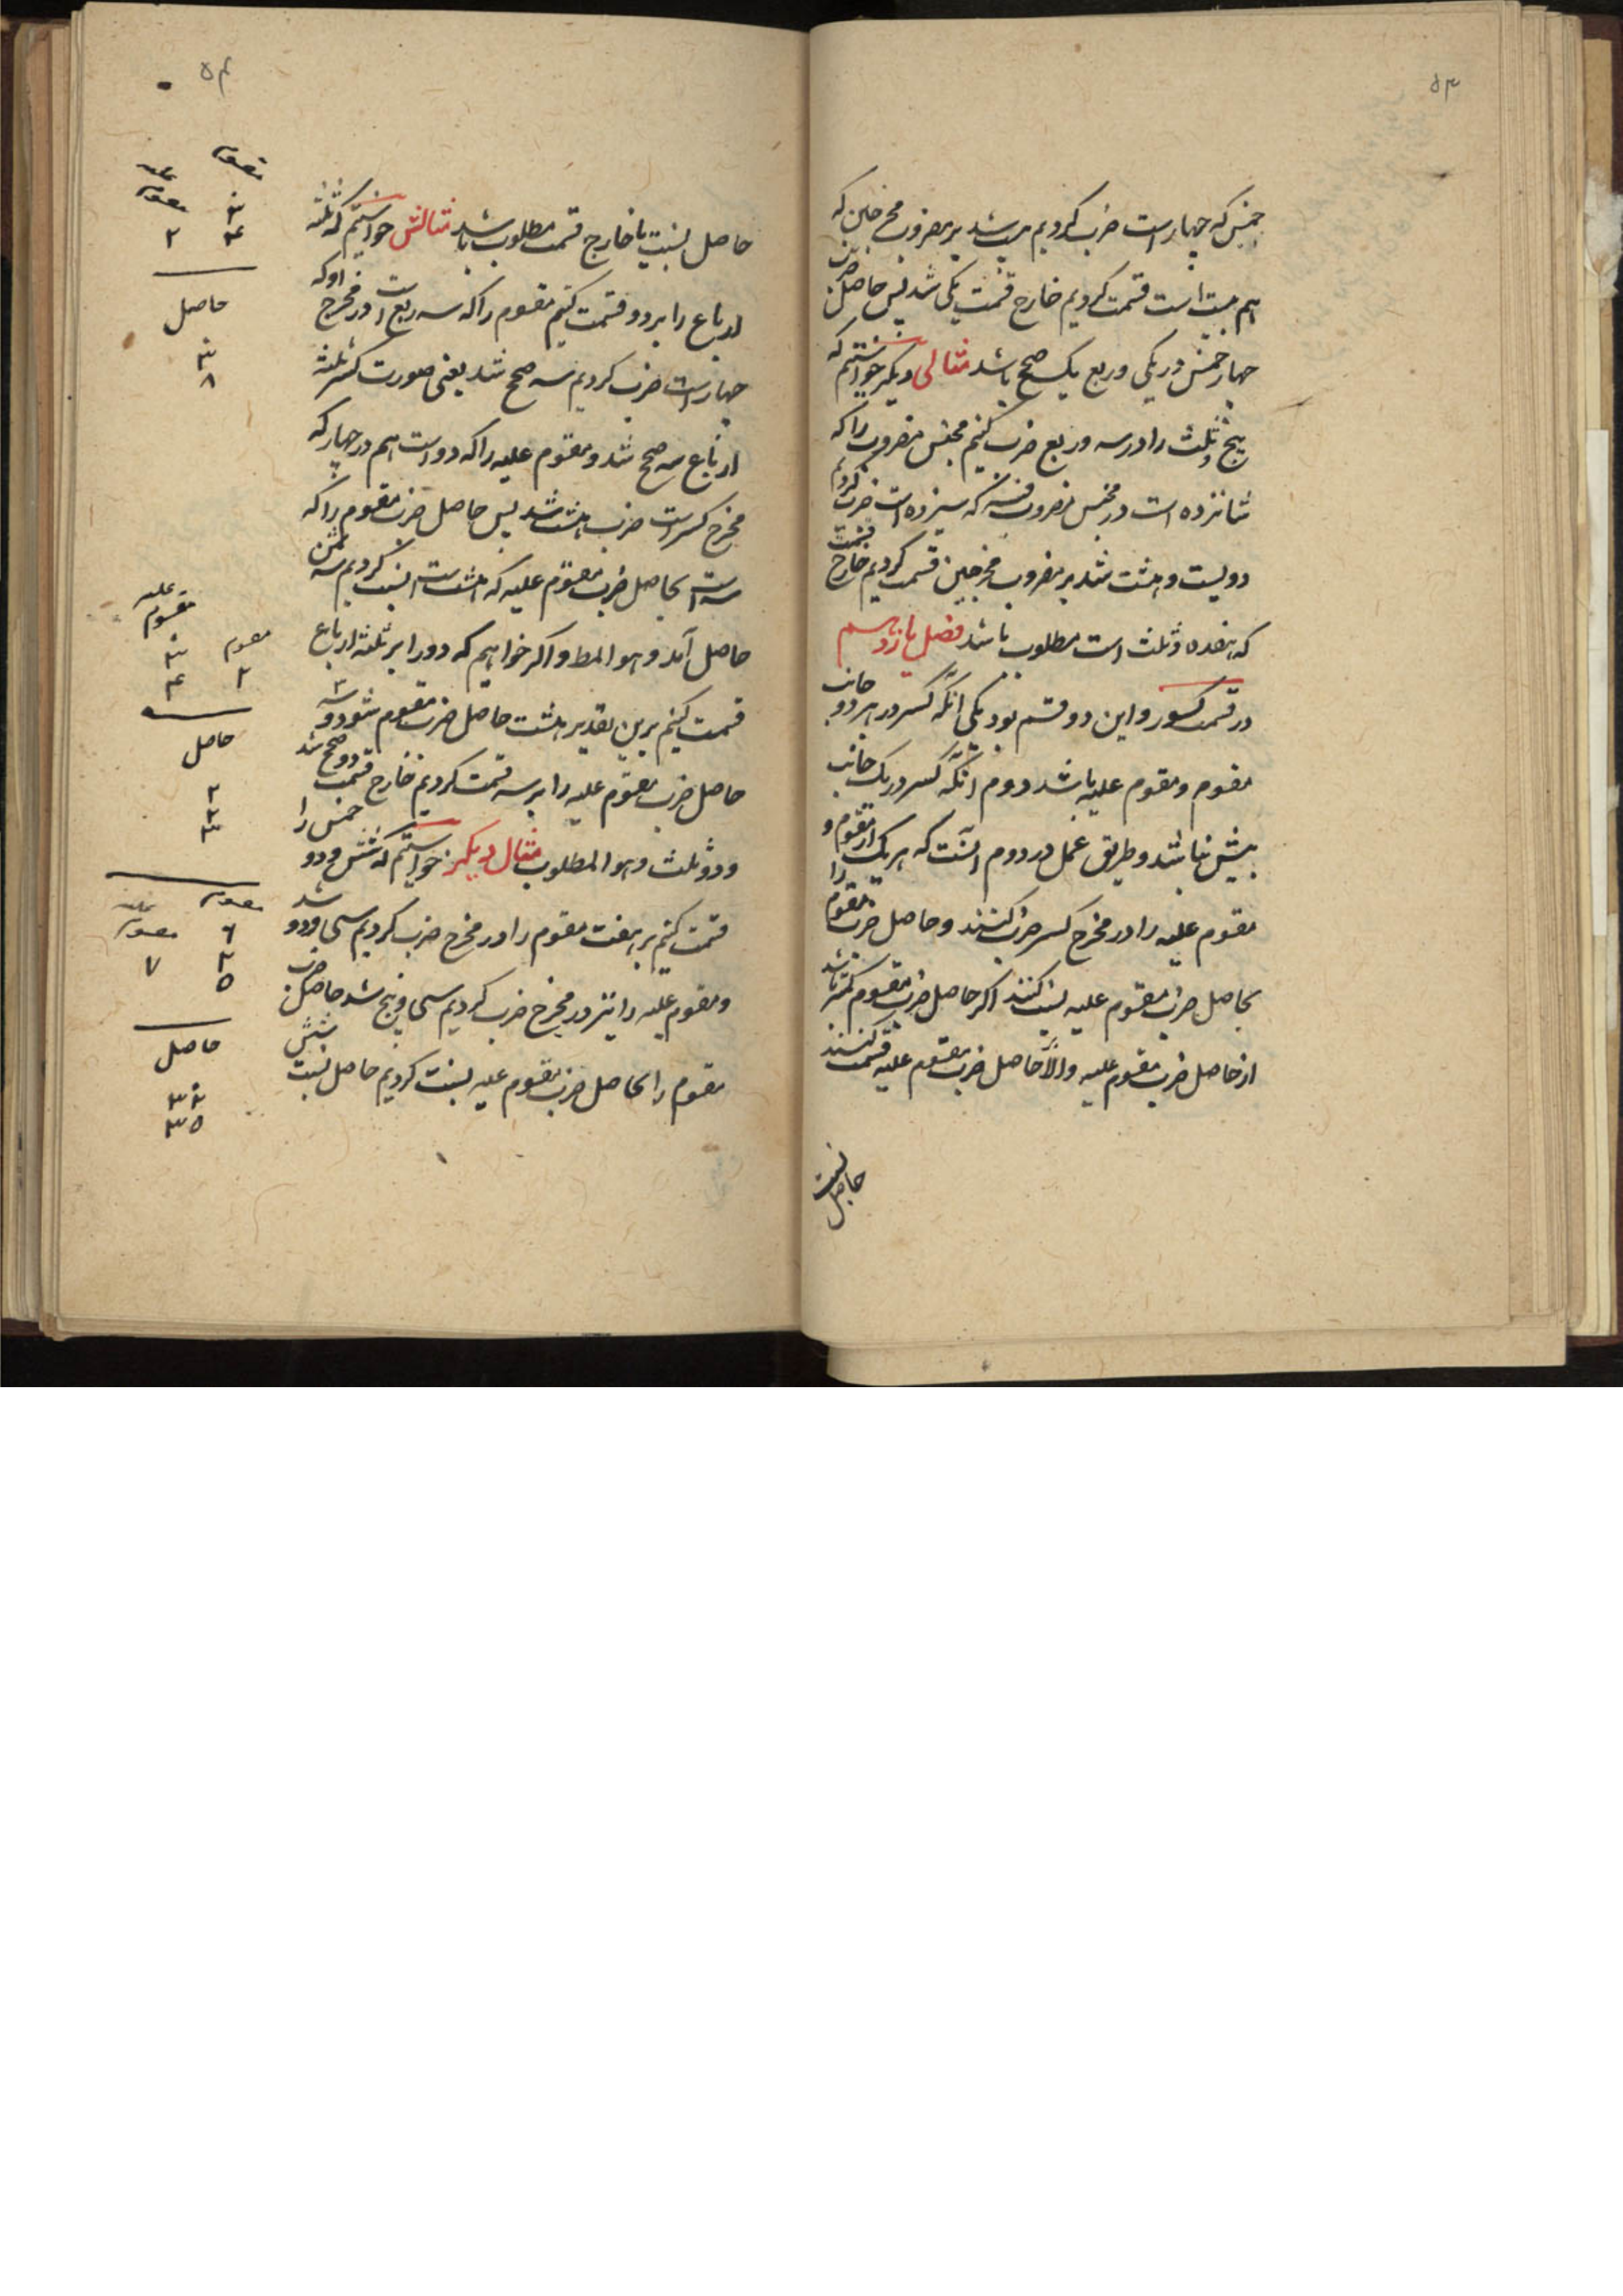 ۵۳
خمس که چهار است ضرب کردیم بیست شد بر مضروب مخرجین که
هم بیست است قسمت کردیم خارج قسمت یکی شد پس حاصل ضرب
چهار خمس در یکی و ربع یک صحیح باشد مثالی دیگر خواستیم که
پنج و ثلث را در سه و ربع ضرب کنیم مجنس مضروب را که
شانزده است در مجنس مضروب فیه که سیزده است ضرب کردیم
دویست و هشت شد بر مضروب مخرجین قسمت کردیم خارج قسمت
که هفده و ثلث است مطلوب باشد فصل یازدهم
در قسمت کسور و این دو قسم بود یکی آنکه کسر در هر دو جانب
مقسوم و مقسوم علیه باشد دوم آنکه کسر در یک جانب
بیش نباشد و طریق عمل در دوم آنست که هر یک از مقسوم و
مقسوم علیه را در مخرج کسر ضرب کنند و حاصل ضرب مقسوم را
بحاصل ضرب مقسوم علیه نسبت کنند اگر حاصل ضرب مقسوم کمتر باشد
از حاصل ضرب مقسوم علیه والا حاصل ضرب مقسوم علیه قسمت کنند
حاصل نسبت
۵۴
حاصل نسبت یا خارج قسمت مطلوب باشد مثالش خواستیم که ثلثه
ارباع را بر دو قسمت کنیم مقسوم را که سه ربع است در مخرج او که
چهار است ضرب کردیم سه صحیح شد یعنی صورت کسر ثلثه
ارباع سه صحیح شد و مقسوم علیه را که دو است هم در چهار که
مخرج کسر است ضرب هشت شد پس حاصل ضرب مقسوم را که
سه است بحاصل ضرب مقسوم علیه که هشت است نسبت کردیم سه ثمن
حاصل آمد و هو المط و اگر خواهیم که دو را بر ثلثه ارباع
قسمت کنیم برین تقدیر هشت حاصل ضرب مقسوم شود و سه
حاصل ضرب مقسوم علیه را بر سه قسمت کردیم خارج قسمت دو صحیح شد
و دو ثلث و هو المطلوب مثال دیگر خواستیم که شش و دو خمس را
قسمت کنیم بر هفت مقسوم را در مخرج ضرب کردیم سی و دو شد
و مقسوم علیه را نیز در مخرج ضرب کردیم سی و پنج شد حاصل ضرب
مقسوم را بحاصل ضرب مقسوم علیه نسبت کردیم حاصل نسبت شش
مقسوم
علیه مقسوم
۳
۴ ۲
حاصل
۳
۸
علیه
مقسوم
مقسوم ۳
۲ ۴
حاصل
۲
۲
۳
مقسوم علیه
مقسوم ۶
۲ ۷
۵
حاصل
۳۲
۳۵